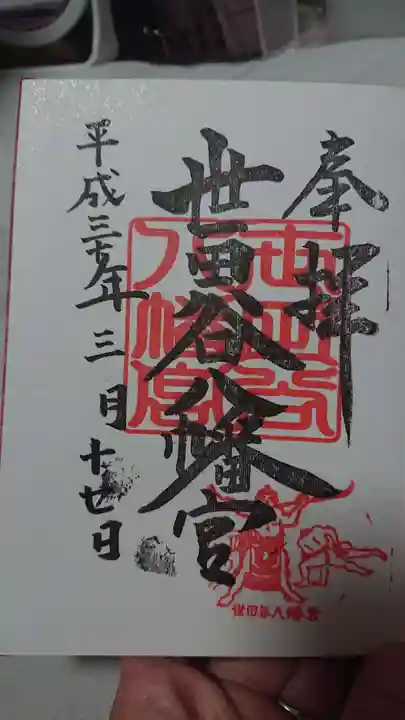 奉拝
世田谷
八幡宮
世田谷八幡宮
平成三十年三月十七日
世田谷八幡宮